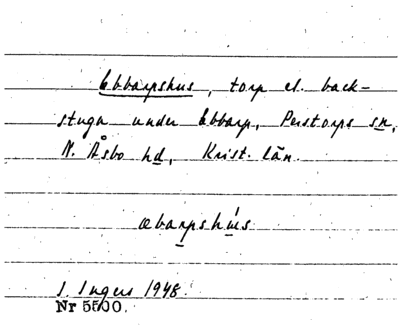 Ebbarpshus, torp el. back-
stuga under Ebbarp, Perstorps sn,
N. Åsbo hd, Krist. län.
æbarpshu̍s
I. Ingers 1948.
Nr 5500.